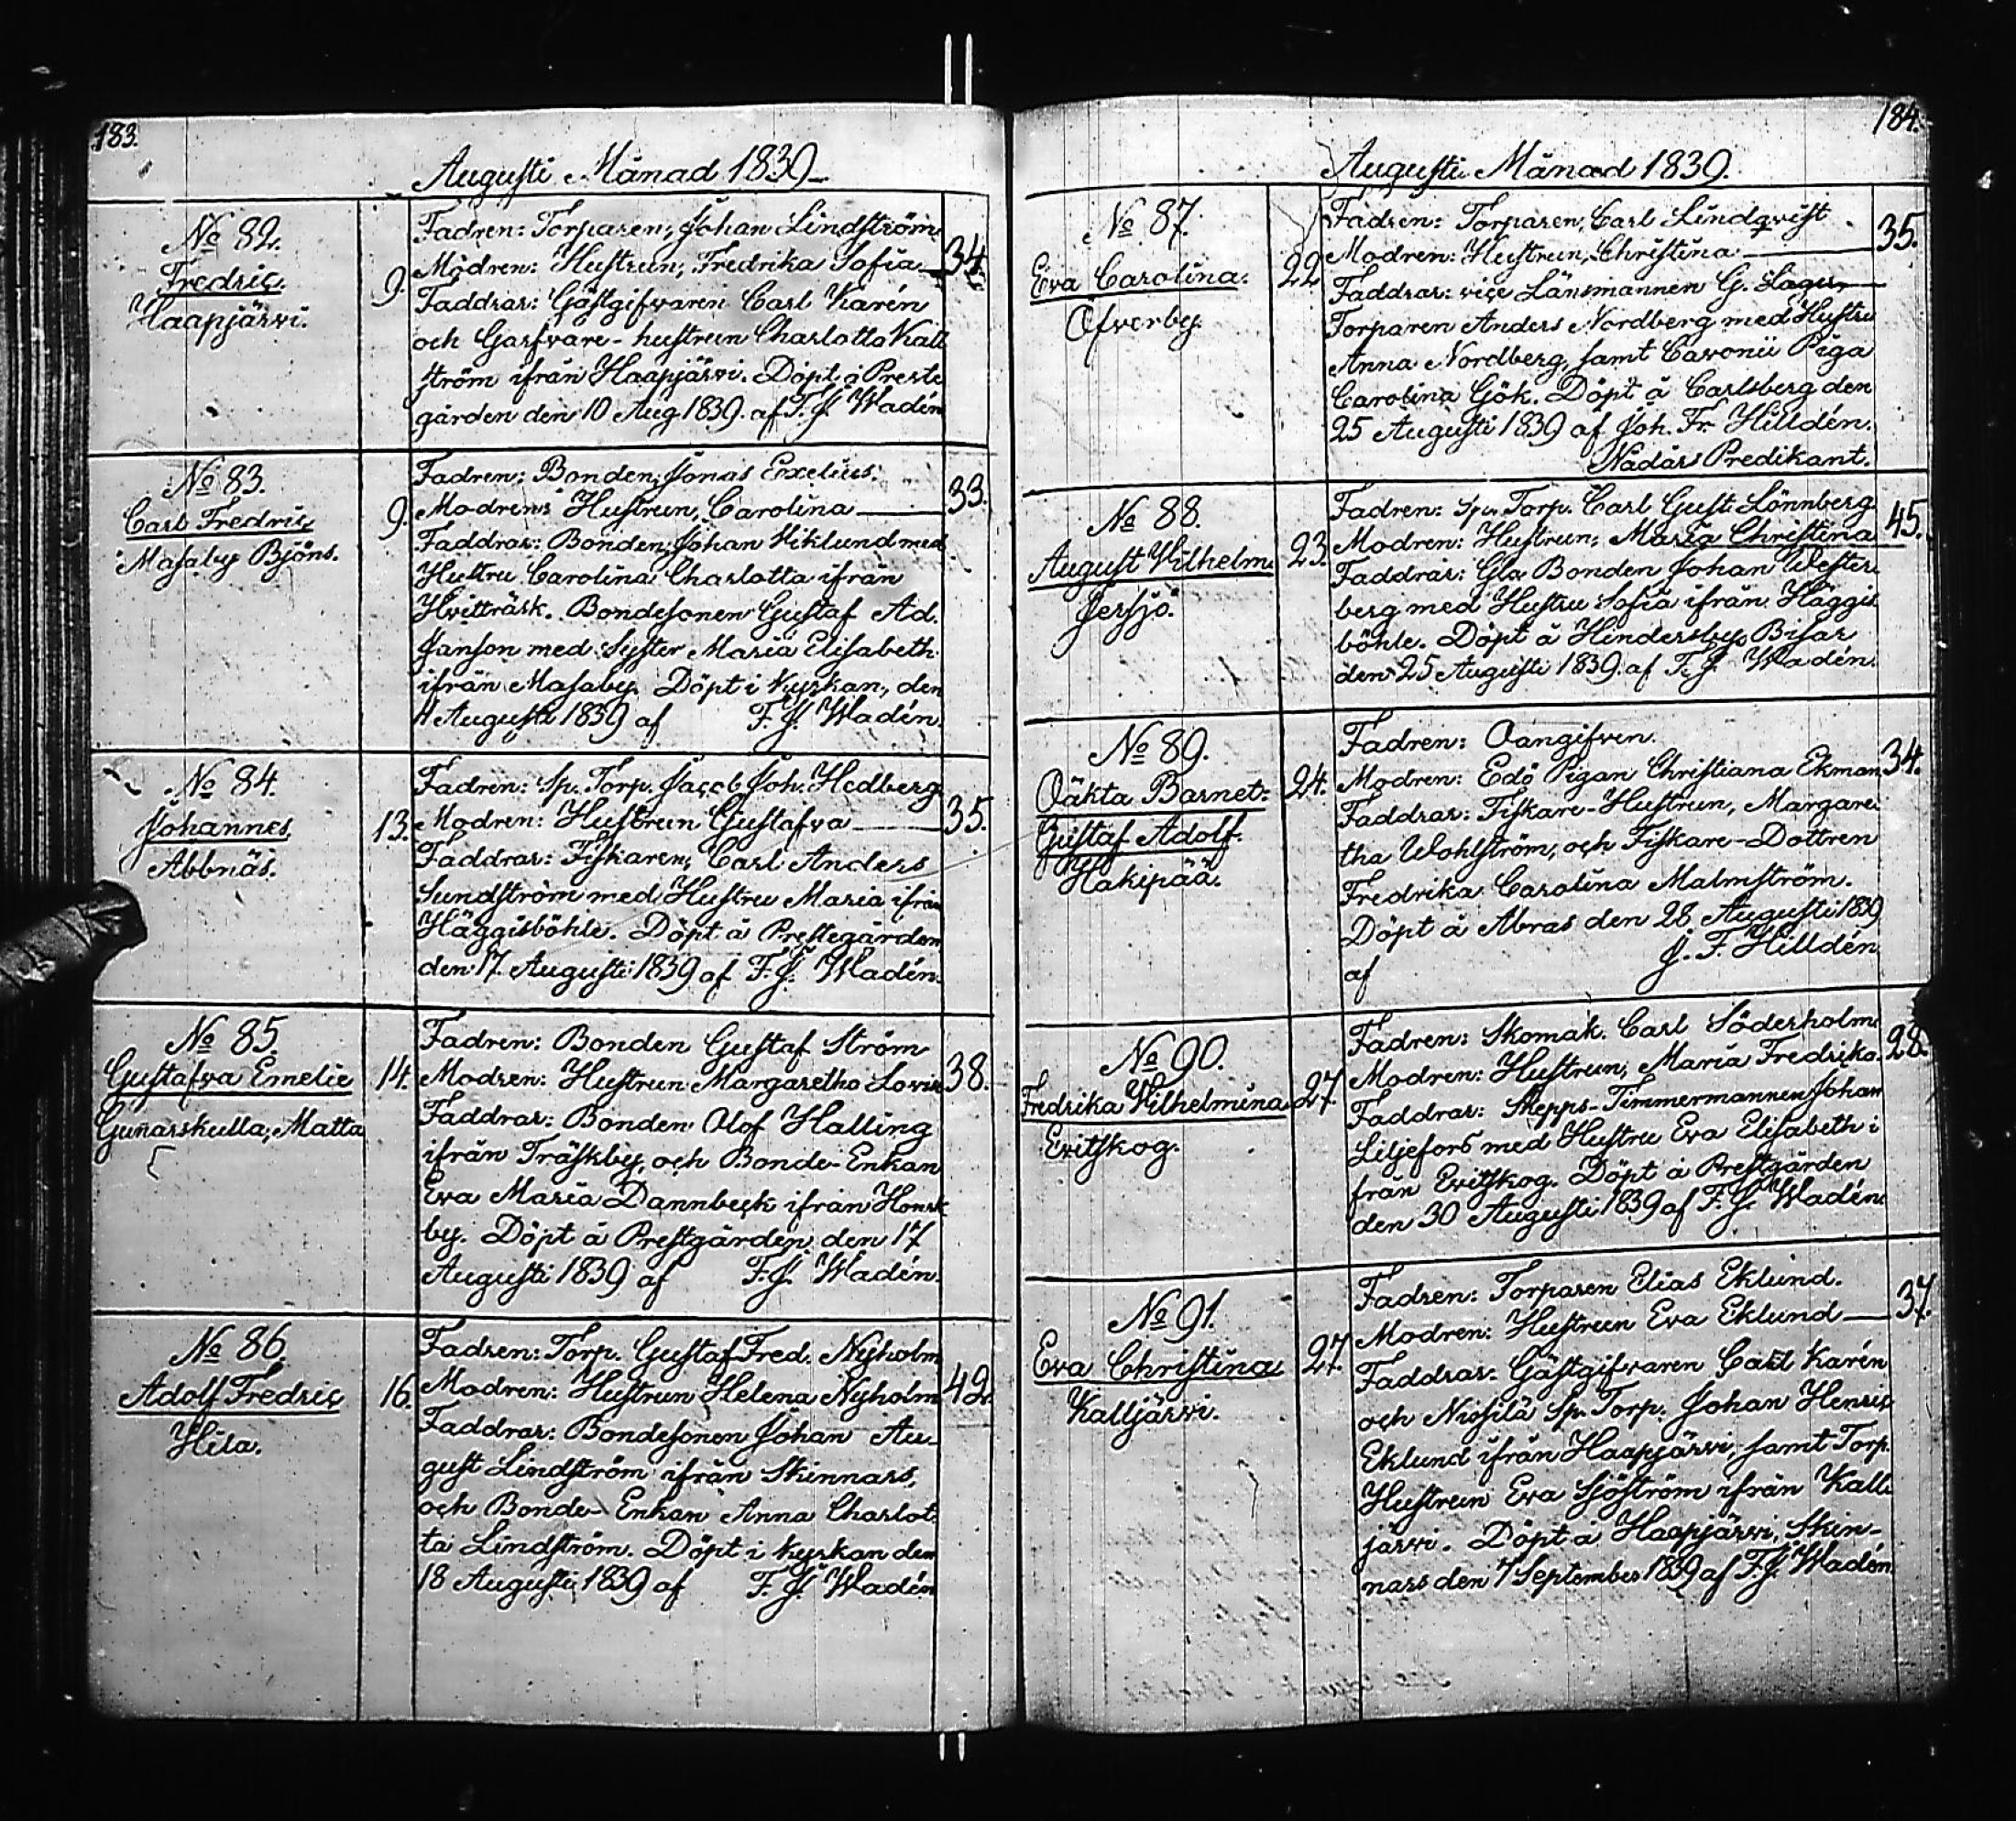 183.
Augusti Månad 1839
No 82.
Fredric.
Haapjärvi.
9.
Fadren: Torparen, Johan Lindström
Modren: Hustrun, Fredrika Sofia
34.
Faddrar: Gästgifvaren Carl Karén
och Garfvare-hustrun Charlotta Kall
ström ifrån Haapjärvi. Döpt å Preste
gården den 10 Aug 1839. af F. J. Wadén
No 83.
Carl Fredric
Masaby Bjöns.
9.
Fadren: Bonden, Jonas Exelius.
Modren: Hustrun, Carolina
33.
Faddrar: Bonden, Johan Wiklund med
Hustru Carolina Charlotta ifrån
Hvitträsk. Bondesonen Gustaf Ad.
Janson med Syster Maria Elisabeth
ifrån Masaby. Döpt i Kyrkan, den
11 Augusti 1839 af F. J. Wadén.
No 84.
Johannes
Abbnäs.
13.
Fadren: Sp. Torp. Jacob Joh. Hedberg
Modren: Hustrun Gustafva
35.
Faddrar: Fiskaren, Carl Anders
Sundström med Hustru Maria ifrån
Häggisböhle. Döpt å Prestegården
den 17 Augusti 1839 af F. J. Wadén.
No 85
Gustafva Emelie
Gunarskulla, Matta
14.
Fadren: Bonden Gustaf Ström
Modren: Hustrun Margaretha Lovis
38.
Faddrar: Bonden Olof Halling
ifrån Träskby, och Bonde-Enkan
Eva Maria Dannbeck ifrån Honsk
by. Döpt å Prestgården den 17
Augusti 1839 af F. J. Wadén.
No 86.
Adolf Fredric
Hila.
16.
Fadren: Torp. Gustaf Fred. Nyholm
Modren: Hustrun Helena Nyholm
42.
Faddrar: Bondesonen Johan Au-
gust Lindström ifrån Skinnars,
och Bonde-Enkan Anna Charlot
ta Lindström. Döpt i Kyrkan den
18 Augusti 1839 af F. J. Wadén
184.
Augusti Månad 1839.
No 87.
Eva Carolina.
Öfverby.
22
Fadren: Torparen, Carl Lindqvist
Modren: Hustrun, Christina
35.
Faddrar: vice Länsmannen G. Lager
Torparen Anders Nordberg med Hustru
Anna Nordberg, samt Pigan
Carolina Gök. Döpt å Carlsberg den
25 Augusti 1839 af Joh. Fr. Hilldén.
Nådårs Predikant.
No 88.
August Vilhelm.
Jersjö.
23.
Fadren: Sp. Torp. Carl Gust. Lönnberg
Modren: Hustrun, Maria Christina
45.
Faddrar: Gla Bonden Johan Wester
berg med Hustru Sofia ifrån Häggis
böhle. Döpt å Hindersby, Bisas
den 25 Augusti 1839 af F. J. Wadén.
No 89.
Oäkta Barnet:
Gustaf Adolf.
Hakipää.
24.
Fadren: Oangifven.
Modren: Edö Pigan Christiana Ekman
34.
Faddrar: Fiskare-Hustrun, Margare
tha Wohlström, och Fiskare-Dottren
Fredrika Carolina Malmström.
Döpt å Abras den 28 Augusti 1839
af J. F. Hilldén
No 90.
Fredrika Vilhelmina
Evitskog.
27.
Fadren: Skomak. Carl Söderholm
Modren: Hustrun, Maria Fredrika
28.
Faddrar: Skepps-Timmermannen Johan
Liljefors med Hustru Eva Elisabeth i
från Evitskog. Döpt å Prestgården
den 30 Augusti 1839 af F. J. Wadén.
No 91.
Eva Christina
Kalljärvi.
27.
Fadren: Torparen Elias Eklund.
Modren: Hustrun Eva Eklund
37.
Faddrar: Gästgifvaren Carl Karén
och Niosilä Sp. Torp. Johan Henric
Eklund ifrån Haapjärvi, samt Torp.
Hustrun Eva Sjöström ifrån Kall
järvi. Döpt å Haapjärvi, Skin-
nars den 7 September 1839 af F. J. Wadén